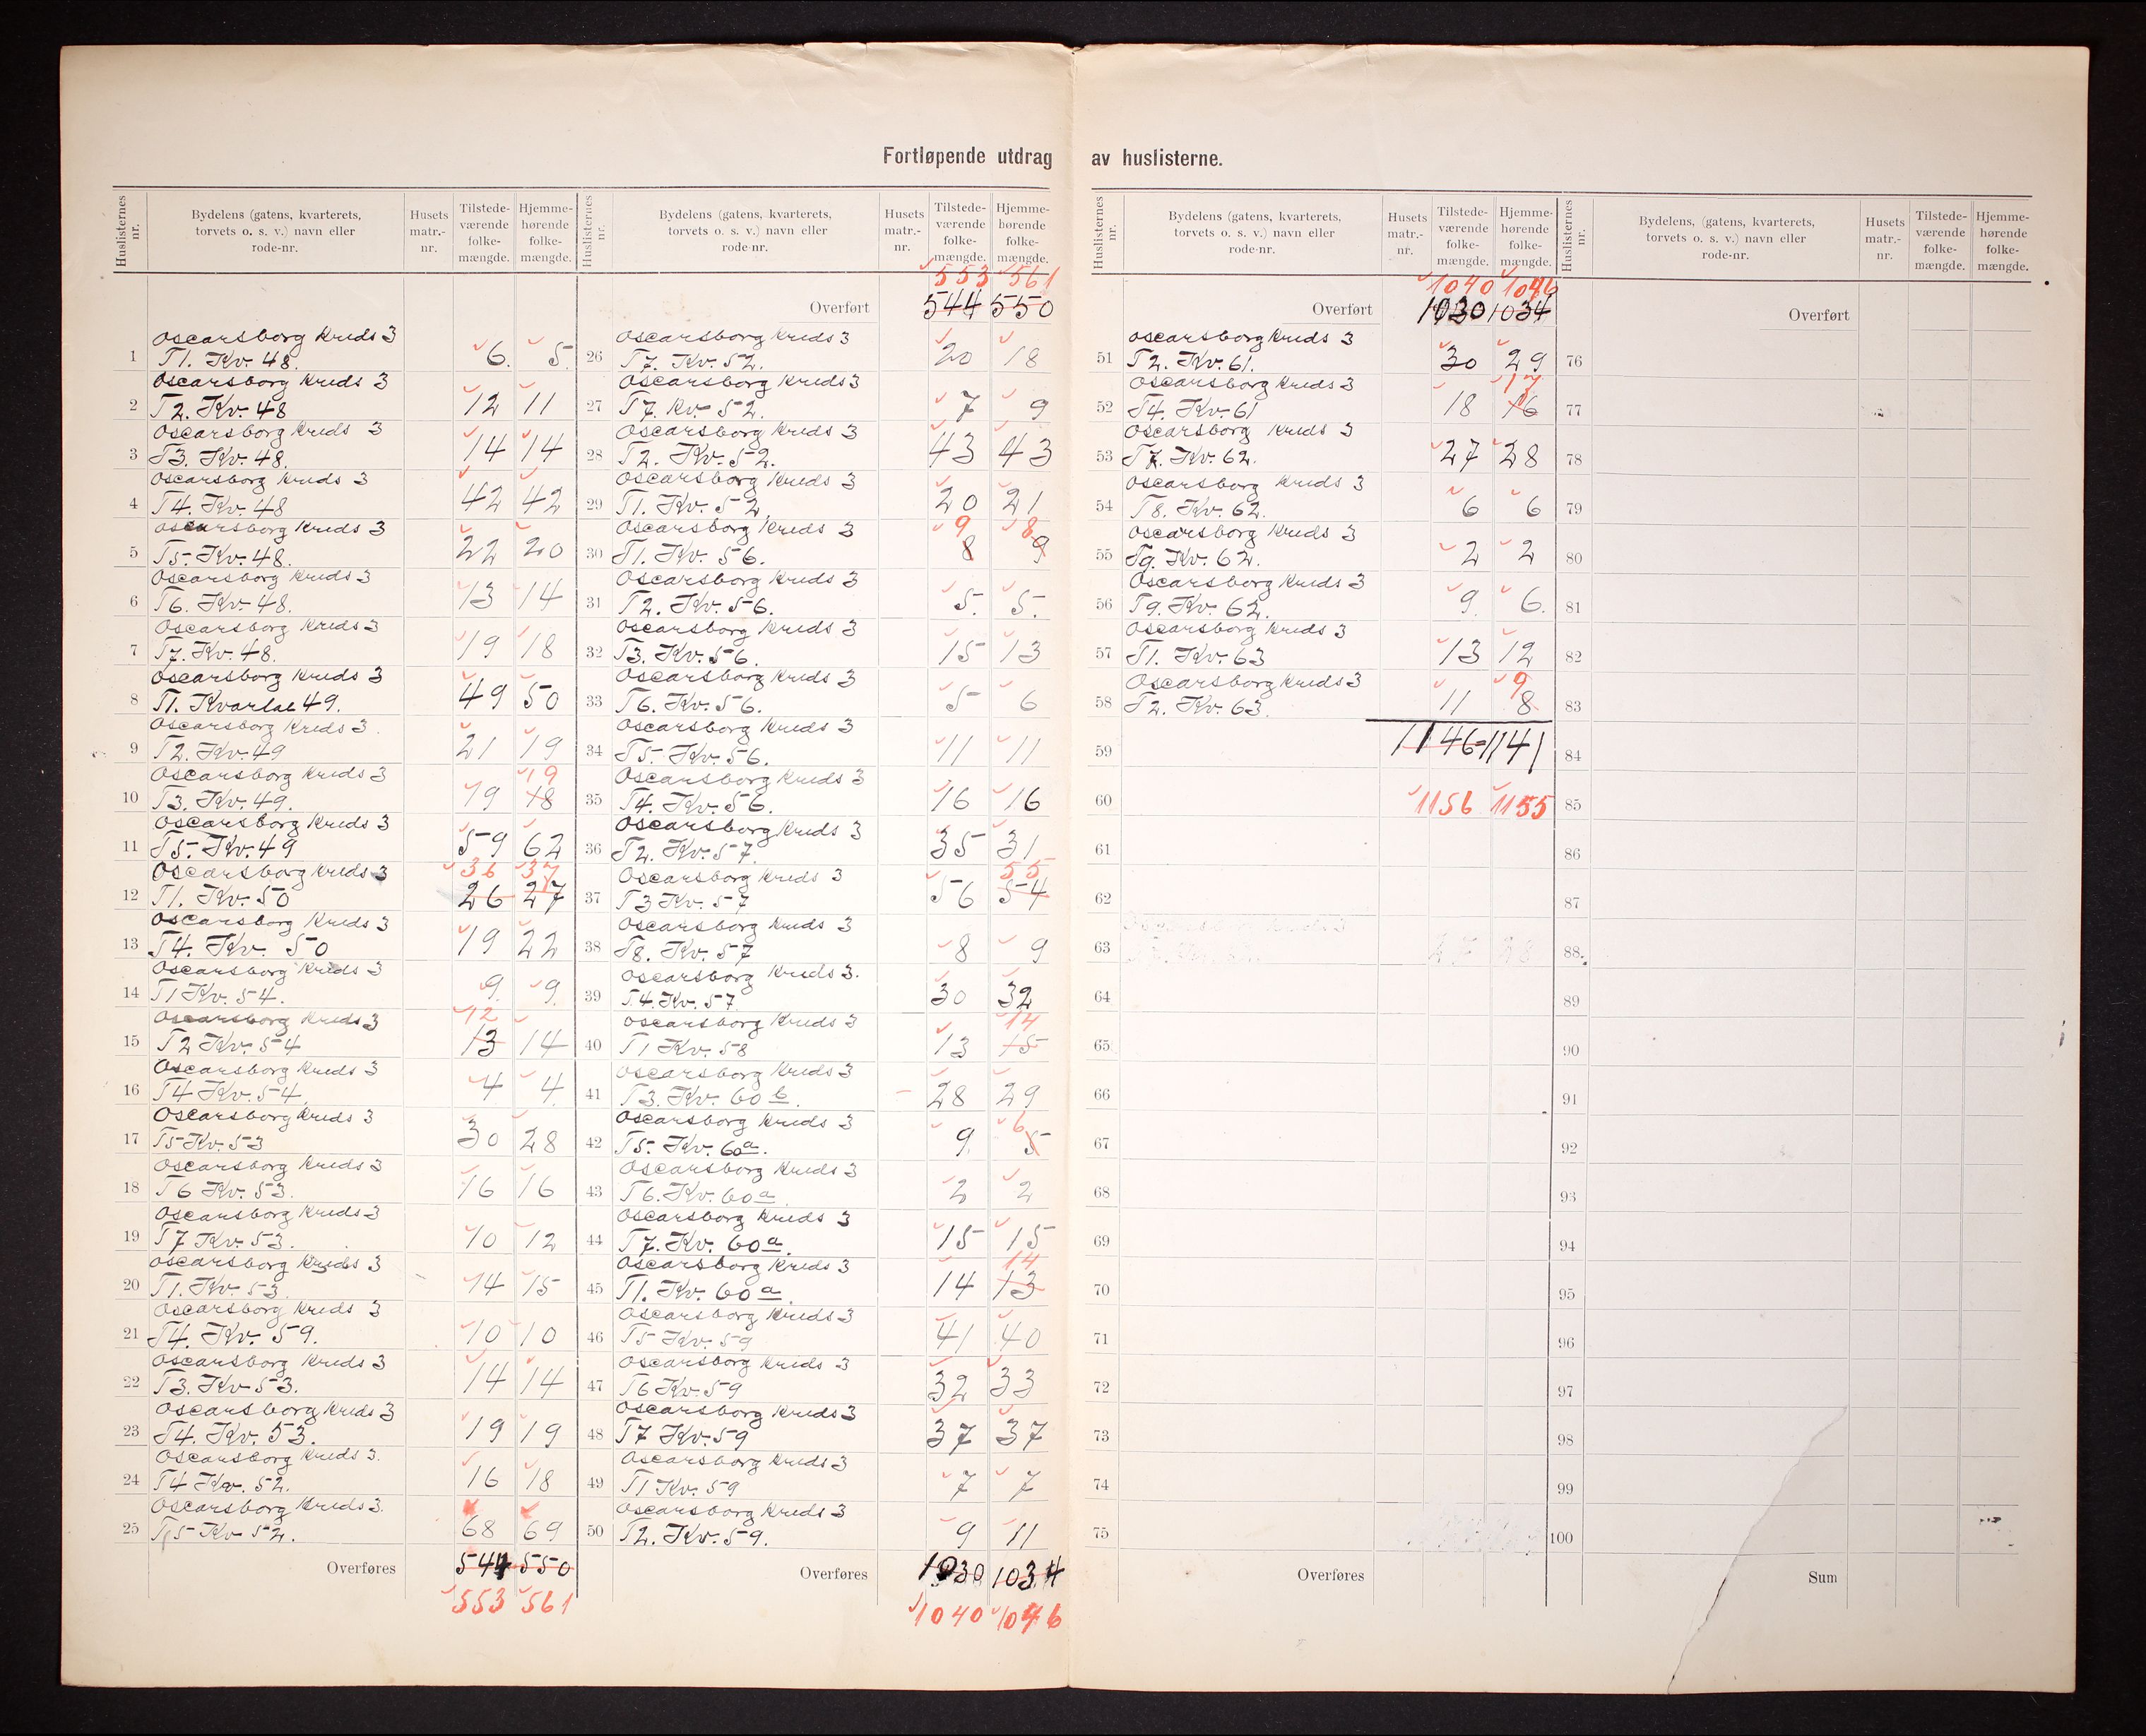 Fortløpende utdrag av huslisterne.
Huslisternes nr. Bydelens (gatens, kvarterets, torvets o. s. v.) navn eller rode-nr. Husets matr.-nr. Tilstede-værende folke-mængde. Hjemme-hørende folke-mængde.
1 Oscarsborg Kreds 3
T1. Kv. 48. 6. 5.
2 Oscarsborg Kreds 3
T2. Kv. 48 12 11
3 Oscarsborg Kreds 3
T3. Kv. 48. 14 14
4 Oscarsborg Kreds 3
T4. Kv. 48 42 42
5 Oscarsborg Kreds 3
T5. Kv. 48. 22 20
6 Oscarsborg Kreds 3
T6. Kv. 48. 13 14
7 Oscarsborg Kreds 3
T7. Kv. 48. 19 18
8 Oscarsborg Kreds 3
T1. Kvartal 49. 49 50
9 Oscarsborg Kreds 3.
T2. Kv. 49 21 19
10 Oscarsborg Kreds 3 19
T3. Kv. 49. 19 18
11 Oscarsborg Kreds 3
T5. Kv. 49 59 62
12 Oscarsborg Kreds 3 36 37
T1. Kv. 50 26 27
13 Oscarsborg Kreds 3
T4. Kv. 50 19 22
14 Oscarsborg Kreds 3
T1 Kv. 54. 9. 9.
15 Oscarsborg Kreds 3 12
T2 Kv. 54 13 14
16 Oscarsborg Kreds 3
T4 Kv. 54. 4 4
17 Oscarsborg Kreds 3
T5 Kv. 53 30 28
18 Oscarsborg Kreds 3
T6 Kv. 53. 16 16
19 Oscarsborg Kreds 3
T7 Kv. 53. 10 12
20 Oscarsborg Kreds 3
T1. Kv. 53. 14 15
21 Oscarsborg Kreds 3
T4. Kv. 59. 10 10
22 Oscarsborg Kreds 3
T3. Kv 53. 14 14
23 Oscarsborg Kreds 3
T4. Kv. 53. 19 19
24 Oscarsborg Kreds 3.
T4 Kv. 52. 16 18
25 Oscarsborg Kreds 3.
T5 Kv 52. 68 69
Overføres 544 550
553 561
Huslisternes nr. Bydelens (gatens, kvarterets, torvets o. s. v.) navn eller rode-nr. Husets matr.-nr. Tilstede-værende folke-mængde. Hjemme-hørende folke-mængde.
553 561
Overført 544 550
26 Oscarsborg Kreds 3
T7. Kv. 52. 20 18
27 Oscarsborg Kreds 3
T7. Kv. 52. 7 9
28 Oscarsborg Kreds 3
T2. Kv. 52. 43 43
29 Oscarsborg Kreds 3
T1. Kv. 52. 20 21
30 Oscarsborg Kreds 3 9 8
T1. Kv. 56. 8 9
31 Oscarsborg Kreds 3
T2. Kv. 56. 5. 5.
32 Oscarsborg Kreds 3
T3. Kv. 56. 15 13
33 Oscarsborg Kreds 3
T6. Kv. 56. 5 6
34 Oscarsborg Kreds 3
T5. Kv. 56. 11 11
35 Oscarsborg Kreds 3
T4. Kv. 56. 16 16
36 Oscarsborg Kreds 3
T2. Kv. 57. 35 31
37 Oscarsborg Kreds 3 55
T3 Kv. 57 56 54
38 Oscarsborg Kreds 3
T8. Kv. 57 8 9
39 Oscarsborg Kreds 3.
T.4. Kv. 57 30 32
40 Oscarsborg Kreds 3 14
T1 Kv. 58 13 15
41 Oscarsborg Kreds 3
T3. Kv. 60 b. 28 29
42 Oscarsborg Kreds 3 6
T5. Kv. 60a. 9. 5
43 Oscarsborg Kreds 3
T6. Kv. 60a. 2 2
44 Oscarsborg Kreds 3
T7. Kv. 60a. 15 15
45 Oscarsborg Kreds 3 14
T1. Kv. 60a. 14 13
46 Oscarsborg Kreds 3
T5 Kv. 59 41 40
47 Oscarsborg Kreds 3
T6 Kv. 59 32 33
48 Oscarsborg Kreds 3
T7 Kv. 59 37 37
49 Oscarsborg Kreds 3
T1 Kv. 59 7 7
50 Oscarsborg Kreds 3
T2. Kv. 59. 9 11
Overføres 1030 1034
1040 1046
Huslisternes nr. Bydelens (gatens, kvarterets, torvets o. s. v.) navn eller rode-nr. Husets matr.-nr. Tilstede-værende folke-mængde. Hjemme-hørende folke-mængde.
1040 1046
Overført 1030 1034
51 Oscarsborg Kreds 3
T2. Kv. 61. 30 29
52 Oscarsborg Kreds 3 17
T4. Kv. 61 18 16
53 Oscarsborg Kreds 3
T7. Kv. 62. 27 28
54 Oscarsborg Kreds 3
T8. Kv. 62. 6 6
55 Oscarsborg Kreds 3
T9. Kv. 62. 2 2
56 Oscarsborg Kreds 3
T9. Kv. 62. 9. 6.
57 Oscarsborg Kreds 3
T1. Kv. 63 13 12
58 Oscarsborg Kreds 3 9
T2. Kv. 63. 11 8
59 1146 = 1141
60 1156 1155
61
62
63
64
65
66
67
68
69
70
71
72
73
74
75
Overføres
Huslisternes nr. Bydelens, (gatens, kvarterets, torvets o. s. v.) navn eller rode-nr. Husets matr.-nr. Tilstede-værende folke-mængde. Hjemme-hørende folke-mængde.
Overført
76
77
78
79
80
81
82
83
84
85
86
87
88
89
90
91
92
93
94
95
96
97
98
99
100
Sum